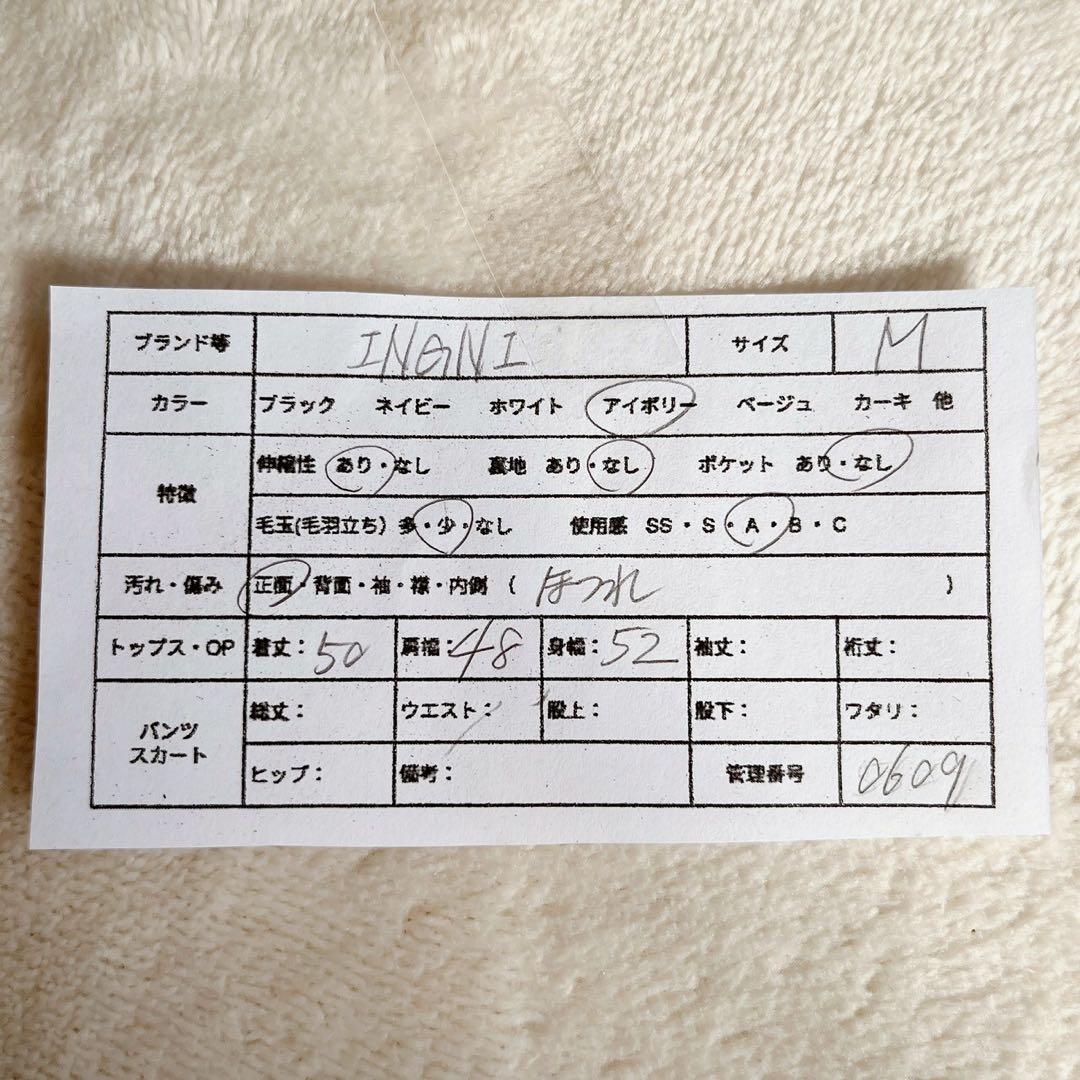 ブランド等 INGNI サイズ M
カラー ブラック ネイビー ホワイト アイボリー ベージュ カーキ 他
特徴 伸縮性 あり・なし 裏地 あり・なし ポケット あり・なし
毛玉(毛羽立ち) 多・少・なし 使用感 SS・S・A・B・C
汚れ・傷み 正面・背面・袖・襟・内側 ( ほつれ )
トップス・OP 着丈: 50 肩幅: 48 身幅: 52 袖丈: 裄丈:
パンツ スカート 総丈: ウエスト: 股上: 股下: ワタリ:
ヒップ: 備考: 管理番号 0609